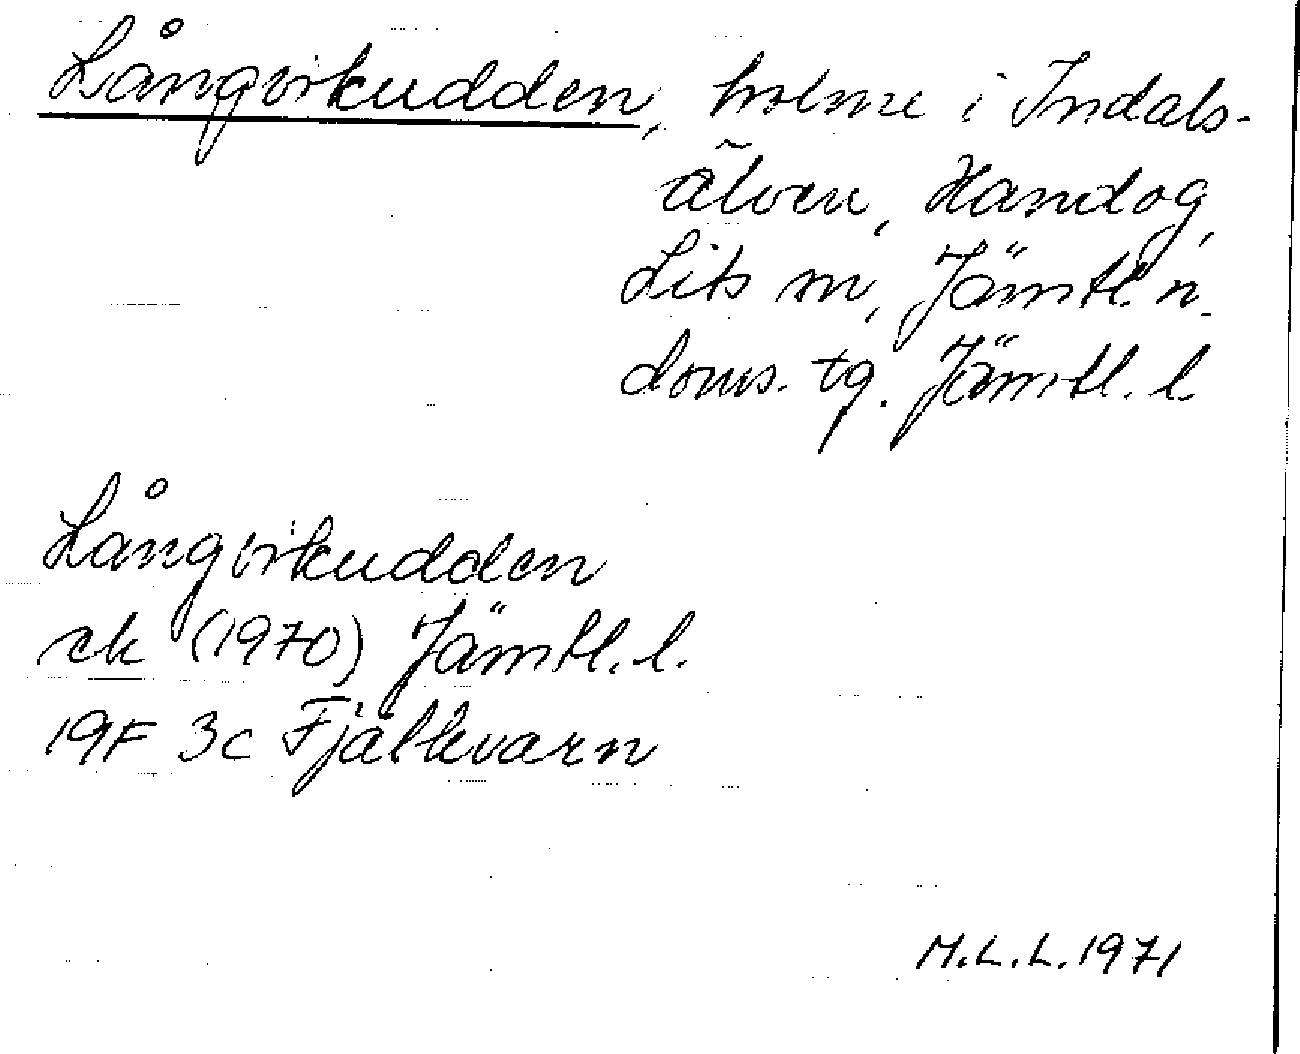 Långvikudden, holme i Indals-
älven, Handog,
Lits sn, Jämtl. n.
doms. tg. Jämtl. l
Långvikudden
ek (1970) Jämtl. l.
19F 3c Fjälkvarn
M.L.L. 1971